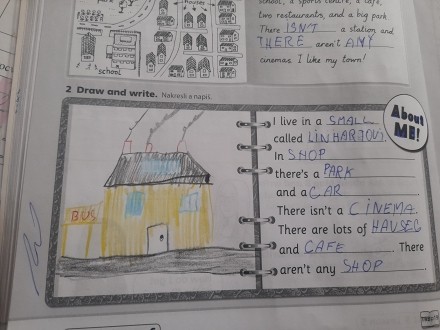 houses
school
school, a sports centre, a café,
two restaurants, and a big park.
There ISN'T a station and
THERE aren't ANY
cinemas. I like my town!
2 Draw and write. Nakresli a napiš.
About
ME!
I live in a SMALL
called LINHARTOVI.
In SHOP
there's a PARK
and a CAR
There isn't a CINEMA.
There are lots of HAUSES
and CAFE There
aren't any SHOP.
BUS